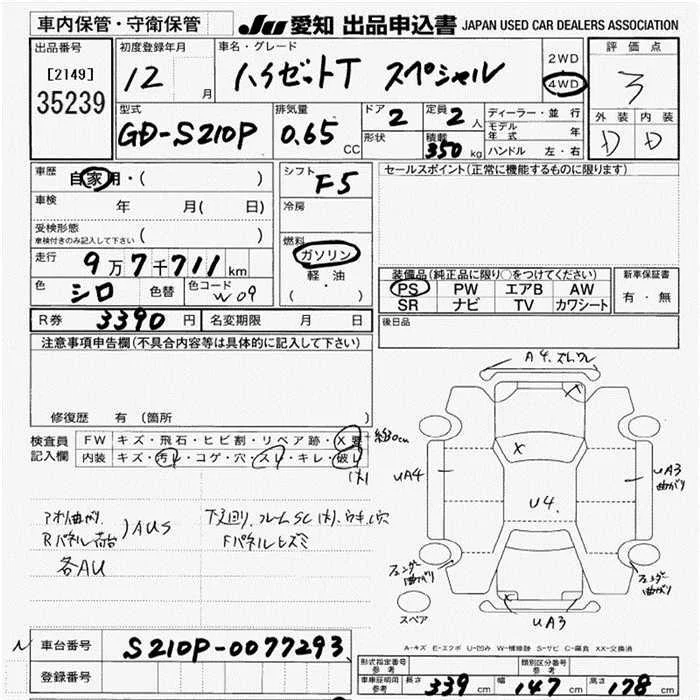 車内保管・守衛保管 JU 愛知 出品申込書 JAPAN USED CAR DEALERS ASSOCIATION
出品番号 初度登録年月 車名・グレード 2WD 評価点
[2149] 12 月 ハイゼットT スペシャル 4WD 3
35239
型式 排気量 ドア 2 定員 2 人 ディーラー・並行 外装 内装
GD-S210P 0.65 CC 形状 積載 350 kg モデル年式 年 D D
ハンドル 左・右
車歴 自家用・( ) シフト F5 セールスポイント(正常に機能するものに限ります)
車検 年 月( 日) 冷房
受検形態 ( )
車検付きのみ記入して下さい
燃料
走行 9万7千711km ガソリン
軽油
( )
装備品(純正品に限り○をつけてください) 新車保証書
色 シロ 色替 色コード W09 PS PW エアB AW 有・無
SR ナビ TV カワシート
R券 3390 円 名変期限 月 日 後日品
注意事項申告欄(不具合内容等は具体的に記入して下さい)
修復歴 有 (箇所 )
A4.
検査員 FW キズ・飛石・ヒビ割・リペア跡・X要 30cm
記入欄 内装 キズ・汚レ・コゲ・穴・スレ・キレ・破レ
(大)
X
UA4 U4. UA3
曲がり
アオリ曲がり. 下廻り.フレームSC(大).サキレ穴
Rパネル )AUS Fパネルヒズミ
各AU
フェンダー曲がり フェンダー曲がり
スペア UA3
A-キズ E-エクボ U-凹み W-補修跡 S-サビ C-腐食 XX-交換済
N 車台番号 S210P-0077293
登録番号
形式指定番号 参考 類別区分番号 参考
車庫証明用 参考 長さ 339 cm 幅 147 cm 高さ 178 cm